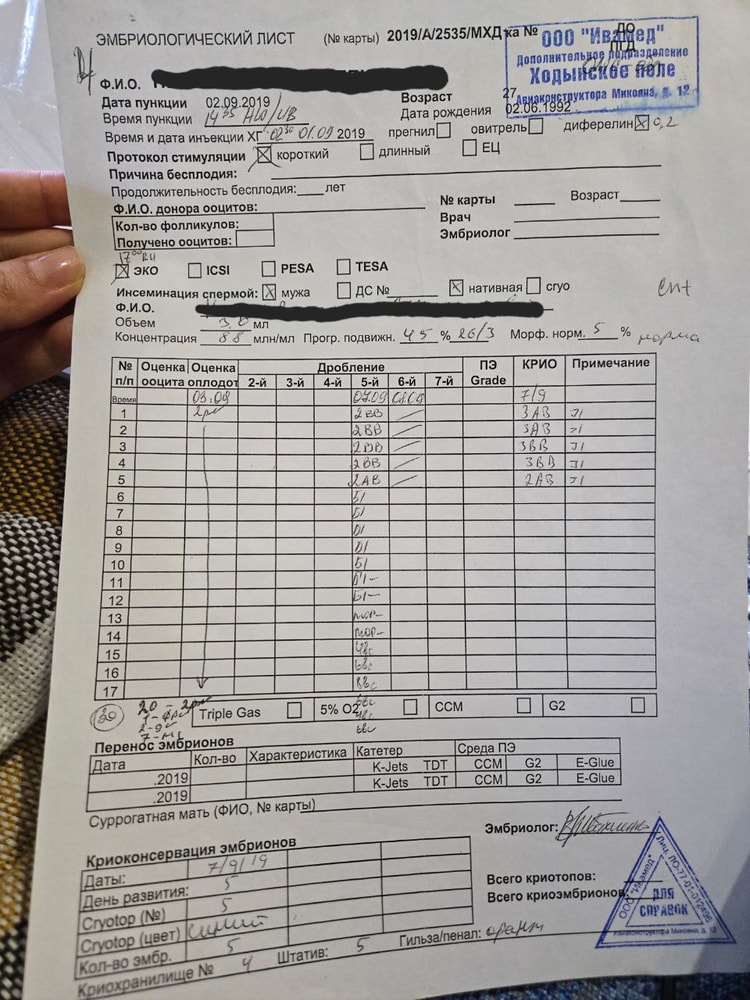 ЭМБРИОЛОГИЧЕСКИЙ ЛИСТ (№ карты) 2019/А/2535/МХД ка №
ДО
ПГД
ООО "Ивамед"
Дополнительное подразделение
Ходынское поле
Авиаконструктора Микояна, д. 12
Ф.И.О.
Дата пункции 02.09.2019 Возраст 27
Время пункции 14 35 Дата рождения 02.06.1992
Время и дата инъекции ХГ 02 30 01.09 2019 прегнил овитрель диферелин 0,2
Протокол стимуляции короткий длинный ЕЦ
Причина бесплодия:
Продолжительность бесплодия: лет
Ф.И.О. донора ооцитов: № карты Возраст
Кол-во фолликулов: Врач
Получено ооцитов: Эмбриолог
17 00
ЭКО ICSI PESA TESA
Инсеминация спермой: мужа ДС № нативная cryo
Ф.И.О.
Объем 3,0 мл
Концентрация 88 млн/мл Прогр. подвижн. 45 % 26/3 Морф. норм. 5 % норма
№ п/п Оценка ооцита Оценка оплодот Дробление ПЭ Grade КРИО Примечание
2-й 3-й 4-й 5-й 6-й 7-й
Время 03.09 07.09 08.09 7/9
1 2pn 2ВВ 3АВ
2 2ВВ 3АВ
3 2ВВ 3ВВ
4 2ВВ 3ВВ
5 2АВ 2АВ
6 Б1
7 Б1
8 Б1
9 Б1
10 Б1
11 Б1-
12 Б1-
13 мор-
14 мор-
15
16
17
30 20 - 2pn
Triple Gas 5% O2 CCM G2
Перенос эмбрионов
Дата Кол-во Характеристика Катетер Среда ПЭ
.2019 K-Jets TDT CCM G2 E-Glue
.2019 K-Jets TDT CCM G2 E-Glue
Суррогатная мать (ФИО, № карты)
Эмбриолог:
Криоконсервация эмбрионов
Даты: 7/9/19
День развития: 5
Cryotop (№) 5
Cryotop (цвет) синий
Кол-во эмбр. 5
Криохранилище № 4 Штатив: 5 Гильза/пенал: оранж
Всего криотопов:
Всего криоэмбрионов:
ООО "Ивамед"
Лиц. ЛО-77-01-012496
ДЛЯ
СПРАВОК
Авиаконструктора Микояна, д. 12